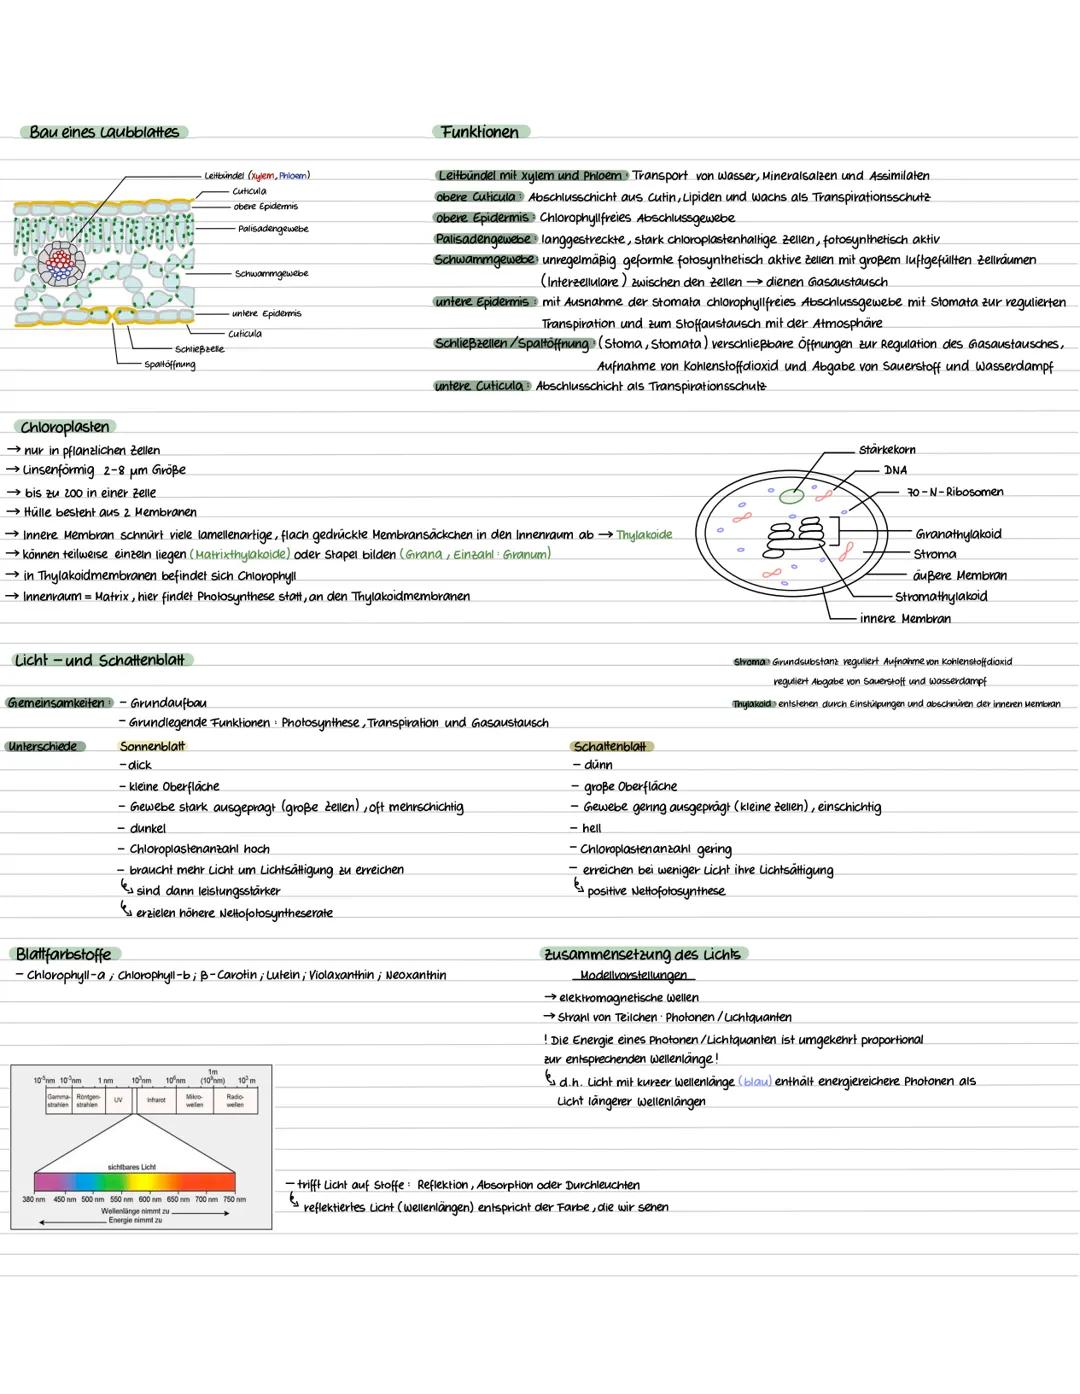 Bau eines Laubblattes
Leitbündel (Xylem, Phloem)
Cuticula
obere Epidermis
Palisadengewebe
Schwammgewebe
untere Epidermis
Cuticula
Schließzelle
Spaltöffnung
Funktionen
Leitbündel mit Xylem und Phloem: Transport von Wasser, Mineralsalzen und Assimilaten
obere Cuticula: Abschlusschicht aus Cutin, Lipiden und Wachs als Transpirationsschutz
obere Epidermis: Chlorophyllfreies Abschlussgewebe
Palisadengewebe: langgestreckte, stark chloroplastenhaltige Zellen, fotosynthetisch aktiv
Schwammgewebe: unregelmäßig geformte fotosynthetisch aktive Zellen mit großem luftgefüllten Zellräumen
(Interzellulare) zwischen den Zellen → dienen Gasaustausch
untere Epidermis: mit Ausnahme der Stomata chlorophyllfreies Abschlussgewebe mit Stomata zur regulierten
Transpiration und zum Stoffaustausch mit der Atmosphäre
Schließzellen/Spaltöffnung: (Stoma, Stomata) verschließbare Öffnungen zur Regulation des Gasaustausches,
Aufnahme von Kohlenstoffdioxid und Abgabe von Sauerstoff und Wasserdampf
untere Cuticula: Abschlusschicht als Transpirationsschutz
Chloroplasten
→ nur in pflanzlichen Zellen
→ Linsenförmig 2-8 µm Größe
→ bis zu 200 in einer Zelle
→ Hülle besteht aus 2 Membranen
→ Innere Membran schnürt viele lamellenartige, flach gedrückte Membransäckchen in den Innenraum ab → Thylakoide
→ können teilweise einzeln liegen (Matrixthylakoide) oder Stapel bilden (Grana, Einzahl: Granum)
→ in Thylakoidmembranen befindet sich Chlorophyll
→ Innenraum = Matrix, hier findet Photosynthese statt, an den Thylakoidmembranen
Stärkekorn
DNA
70-N-Ribosomen
Granathylakoid
Stroma
äußere Membran
Stromathylakoid
innere Membran
Licht - und Schattenblatt
Stroma: Grundsubstanz reguliert Aufnahme von Kohlenstoffdioxid
reguliert Abgabe von Sauerstoff und Wasserdampf
Thylakoid: entstehen durch Einstülpungen und abschnüren der inneren Membran
Gemeinsamkeiten: - Grundaufbau
- Grundlegende Funktionen: Photosynthese, Transpiration und Gasaustausch
Unterschiede
Sonnenblatt
- dick
- kleine Oberfläche
- Gewebe stark ausgepragt (große Zellen), oft mehrschichtig
- dunkel
- Chloroplastenanzahl hoch
- braucht mehr Licht um Lichtsättigung zu erreichen
↳ sind dann leistungsstärker
↳ erzielen höhere Nettofotosyntheserate
Schattenblatt
- dünn
- große Oberfläche
- Gewebe gering ausgeprägt (kleine Zellen), einschichtig
- hell
- Chloroplastenanzahl gering
- erreichen bei weniger Licht ihre Lichtsättigung
↳ positive Nettofotosynthese
Blattfarbstoffe
- Chlorophyll-a; Chlorophyll-b; β-Carotin; Lutein; Violaxanthin; Neoxanthin
Zusammensetzung des Lichts
Modellvorstellungen
→ elektromagnetische Wellen
→ Strahl von Teilchen: Photonen/Lichtquanten
! Die Energie eines Photonen/Lichtquanten ist umgekehrt proportional
zur entsprechenden Wellenlänge!
↳ d.h. Licht mit kurzer Wellenlänge (blau) enthält energiereichere Photonen als
Licht längerer Wellenlängen
1m
10⁻⁵nm 10⁻³nm 1 nm 10³nm 10⁶nm (10⁹nm) 10³ m
Gamma-strahlen Röntgen-strahlen UV Infrarot Mikro-wellen Radio-wellen
sichtbares Licht
380 nm 450 nm 500 nm 550 nm 600 nm 650 nm 700 nm 750 nm
Wellenlänge nimmt zu
Energie nimmt zu
- trifft Licht auf Stoffe: Reflektion, Absorption oder Durchleuchten
↳ reflektiertes Licht (Wellenlängen) entspricht der Farbe, die wir sehen